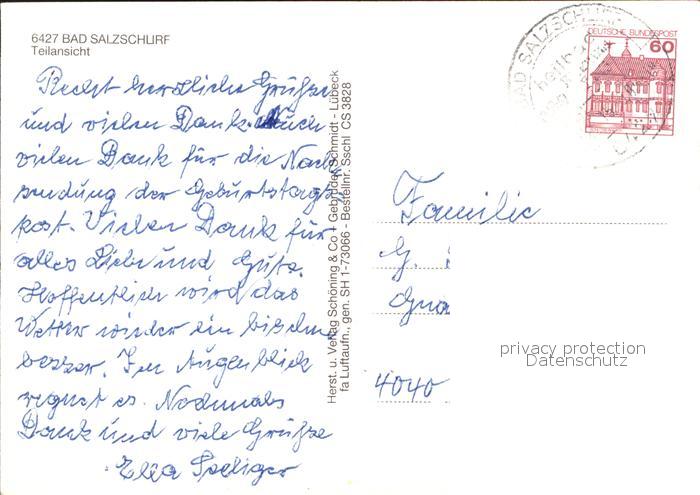 6427 BAD SALZSCHLIRF
Teilansicht
Recht herzliche Grüße
und vielen Dank. Auch
vielen Dank für die Nach
sendung der Geburtstags
post. Vielen Dank für
alles Liebe und Gute.
Hoffentlich wird das
Wetter wieder ein bischen
besser. Im Augenblick
regnet es. Nochmals
Dank und viele Grüße
Herst. u. Verlag Schöning & Co + Gebrüder Schmidt - Lübeck
fa Luftaufn., gen. SH 1-73066 - Bestellnr. Sschl CS 3828
BAD SALZSCHLIRF
DEUTSCHE BUNDESPOST
60
Familie
G.
4040
privacy protection
Datenschutz